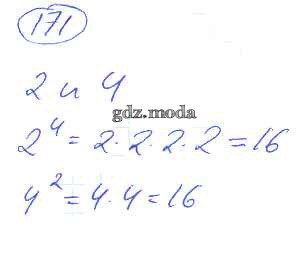 171
2 и 4
gdz.moda
2⁴ = 2·2·2·2 = 16
4² = 4·4 = 16